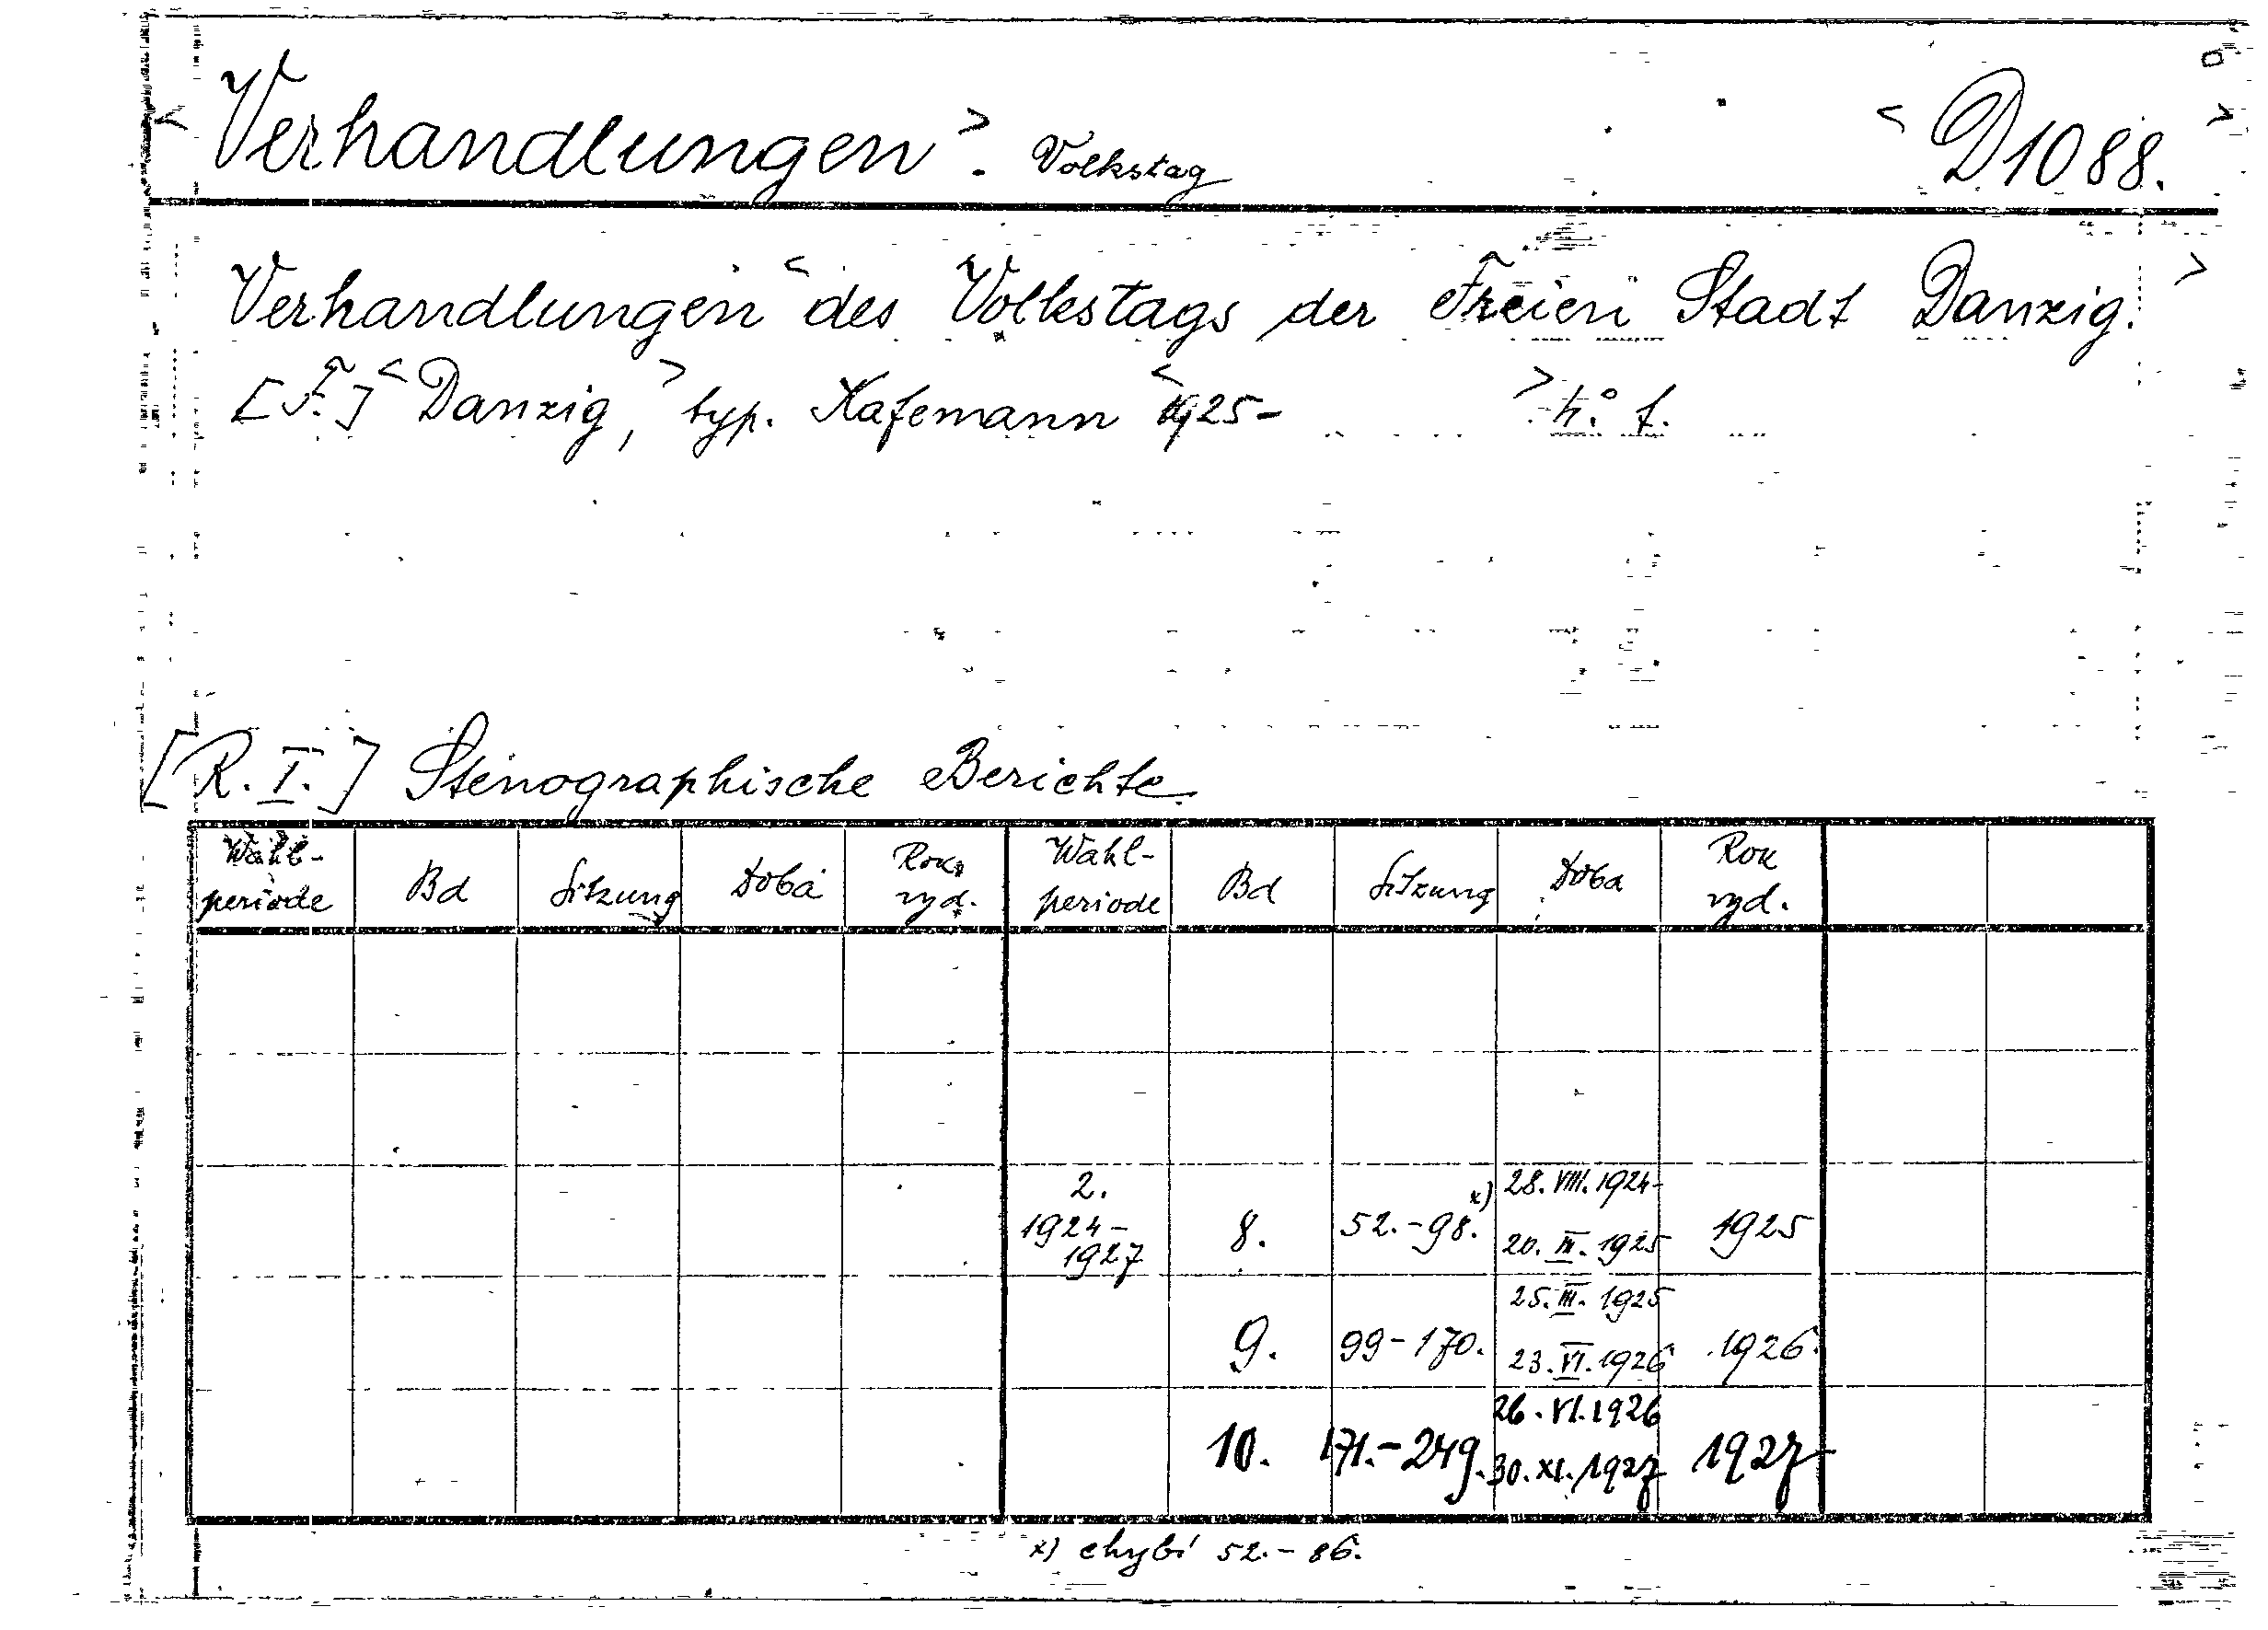 < Verhandlungen >. Volkstag < D 1088. >
Verhandlungen < des Volkstags der Freien Stadt Danzig. >
[F.] < Danzig, > typ. Kafemann < 1925- > 4° f.
[R. I.] Stenographische Berichte.
Wahl-periode Bd Sitzung Doba Rok vyd. Wahl-periode Bd Sitzung Doba Rok vyd.
2. 1924-1927 8. 52.-98. x) 28. VIII. 1924- 20. III. 1925 1925
9. 99-170. 25. III. 1925 23. VI. 1926 1926.
10. 171.-249. 26. VI. 1926 30. XI. 1927 1927
x) chybí 52.-86.